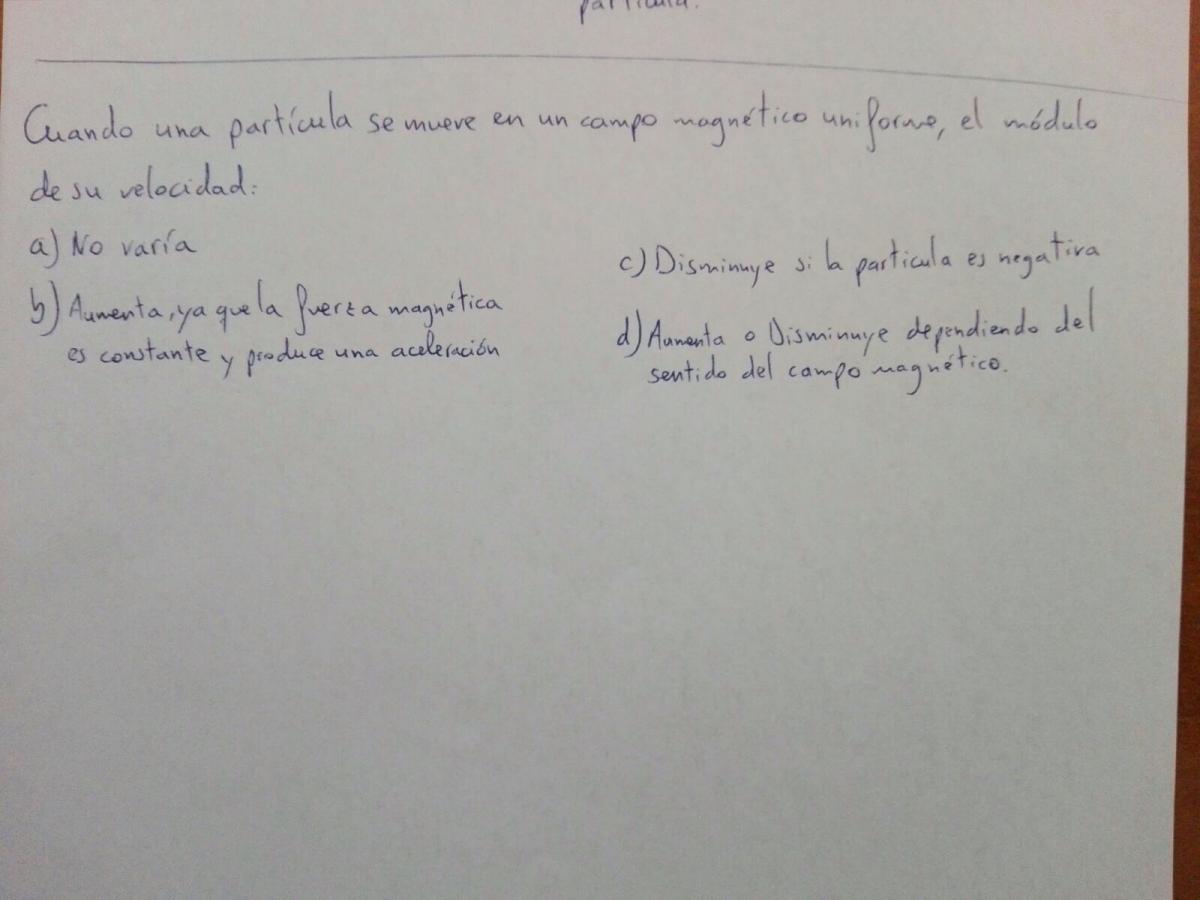 partícula.
Cuando una partícula se mueve en un campo magnético uniforme, el módulo
de su velocidad:
a) No varía
b) Aumenta, ya que la fuerza magnética
es constante y produce una aceleración
c) Disminuye si la particula es negativa
d) Aumenta o Disminuye dependiendo del
sentido del campo magnético.